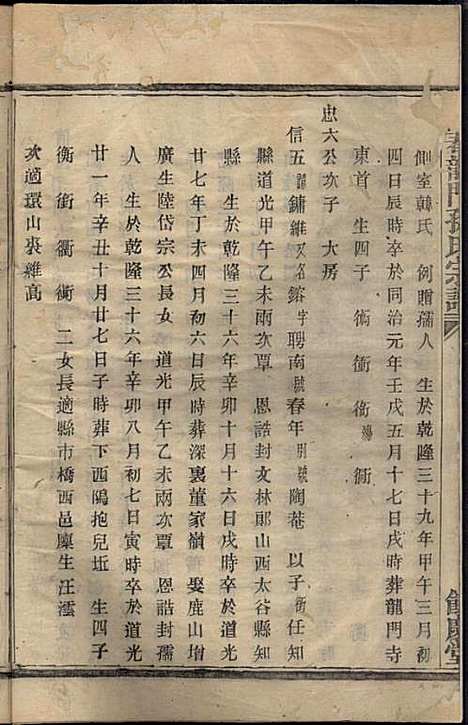 側室韓氏 例贈孺人 生於乾隆三十九年甲午三月初
四日辰時卒於同治元年壬戌五月十七日戌時葬龍門寺
東首 生四子 衡殤
忠大公次子 大房
信五諱鏞維又名鎔字聘南號春年別號陶菴 以子衡任知
縣道光甲午乙未兩次覃 恩誥封文林郎山西太谷縣知
縣 生於乾隆三十六年辛卯十月十六日戌時卒於道光
廿七年丁未四月初六日辰時葬深裏董家嶺 娶鹿山增
廣生陸岱宗公長女 道光甲午乙未兩次覃 恩誥封孺
人 生於乾隆三十六年辛卯八月初七日寅時卒於道光
廿一年辛丑十月廿七日子時葬下西隝抱兒坵 生四子
衡 衝 衢 衛 二女長適縣市橋西邑廩生汪澐
次適環山裘維高
春龍門孫氏宗譜
餘慶堂